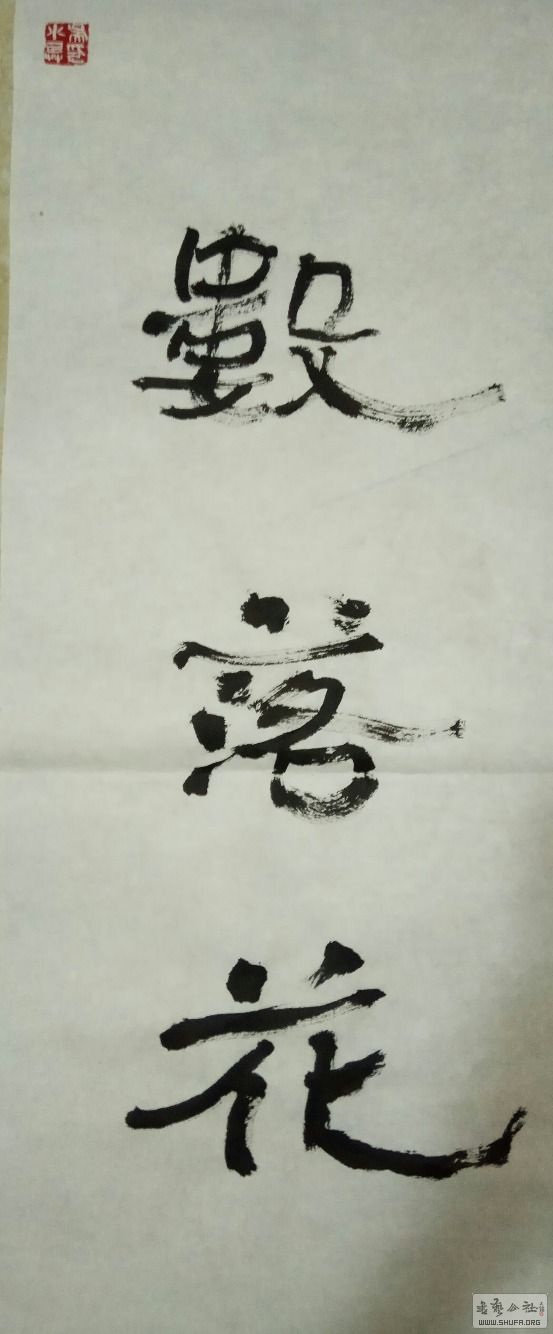 數落花
書藝公社
WWW.SHUFA.ORG